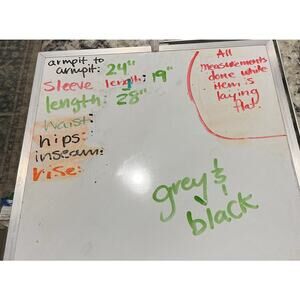 armpit to
armpit: 24"
Sleeve length: 19"
length: 28"
waist:
hips:
inseam:
rise:
All
measurements
done while
item is
laying
flat
grey &
black